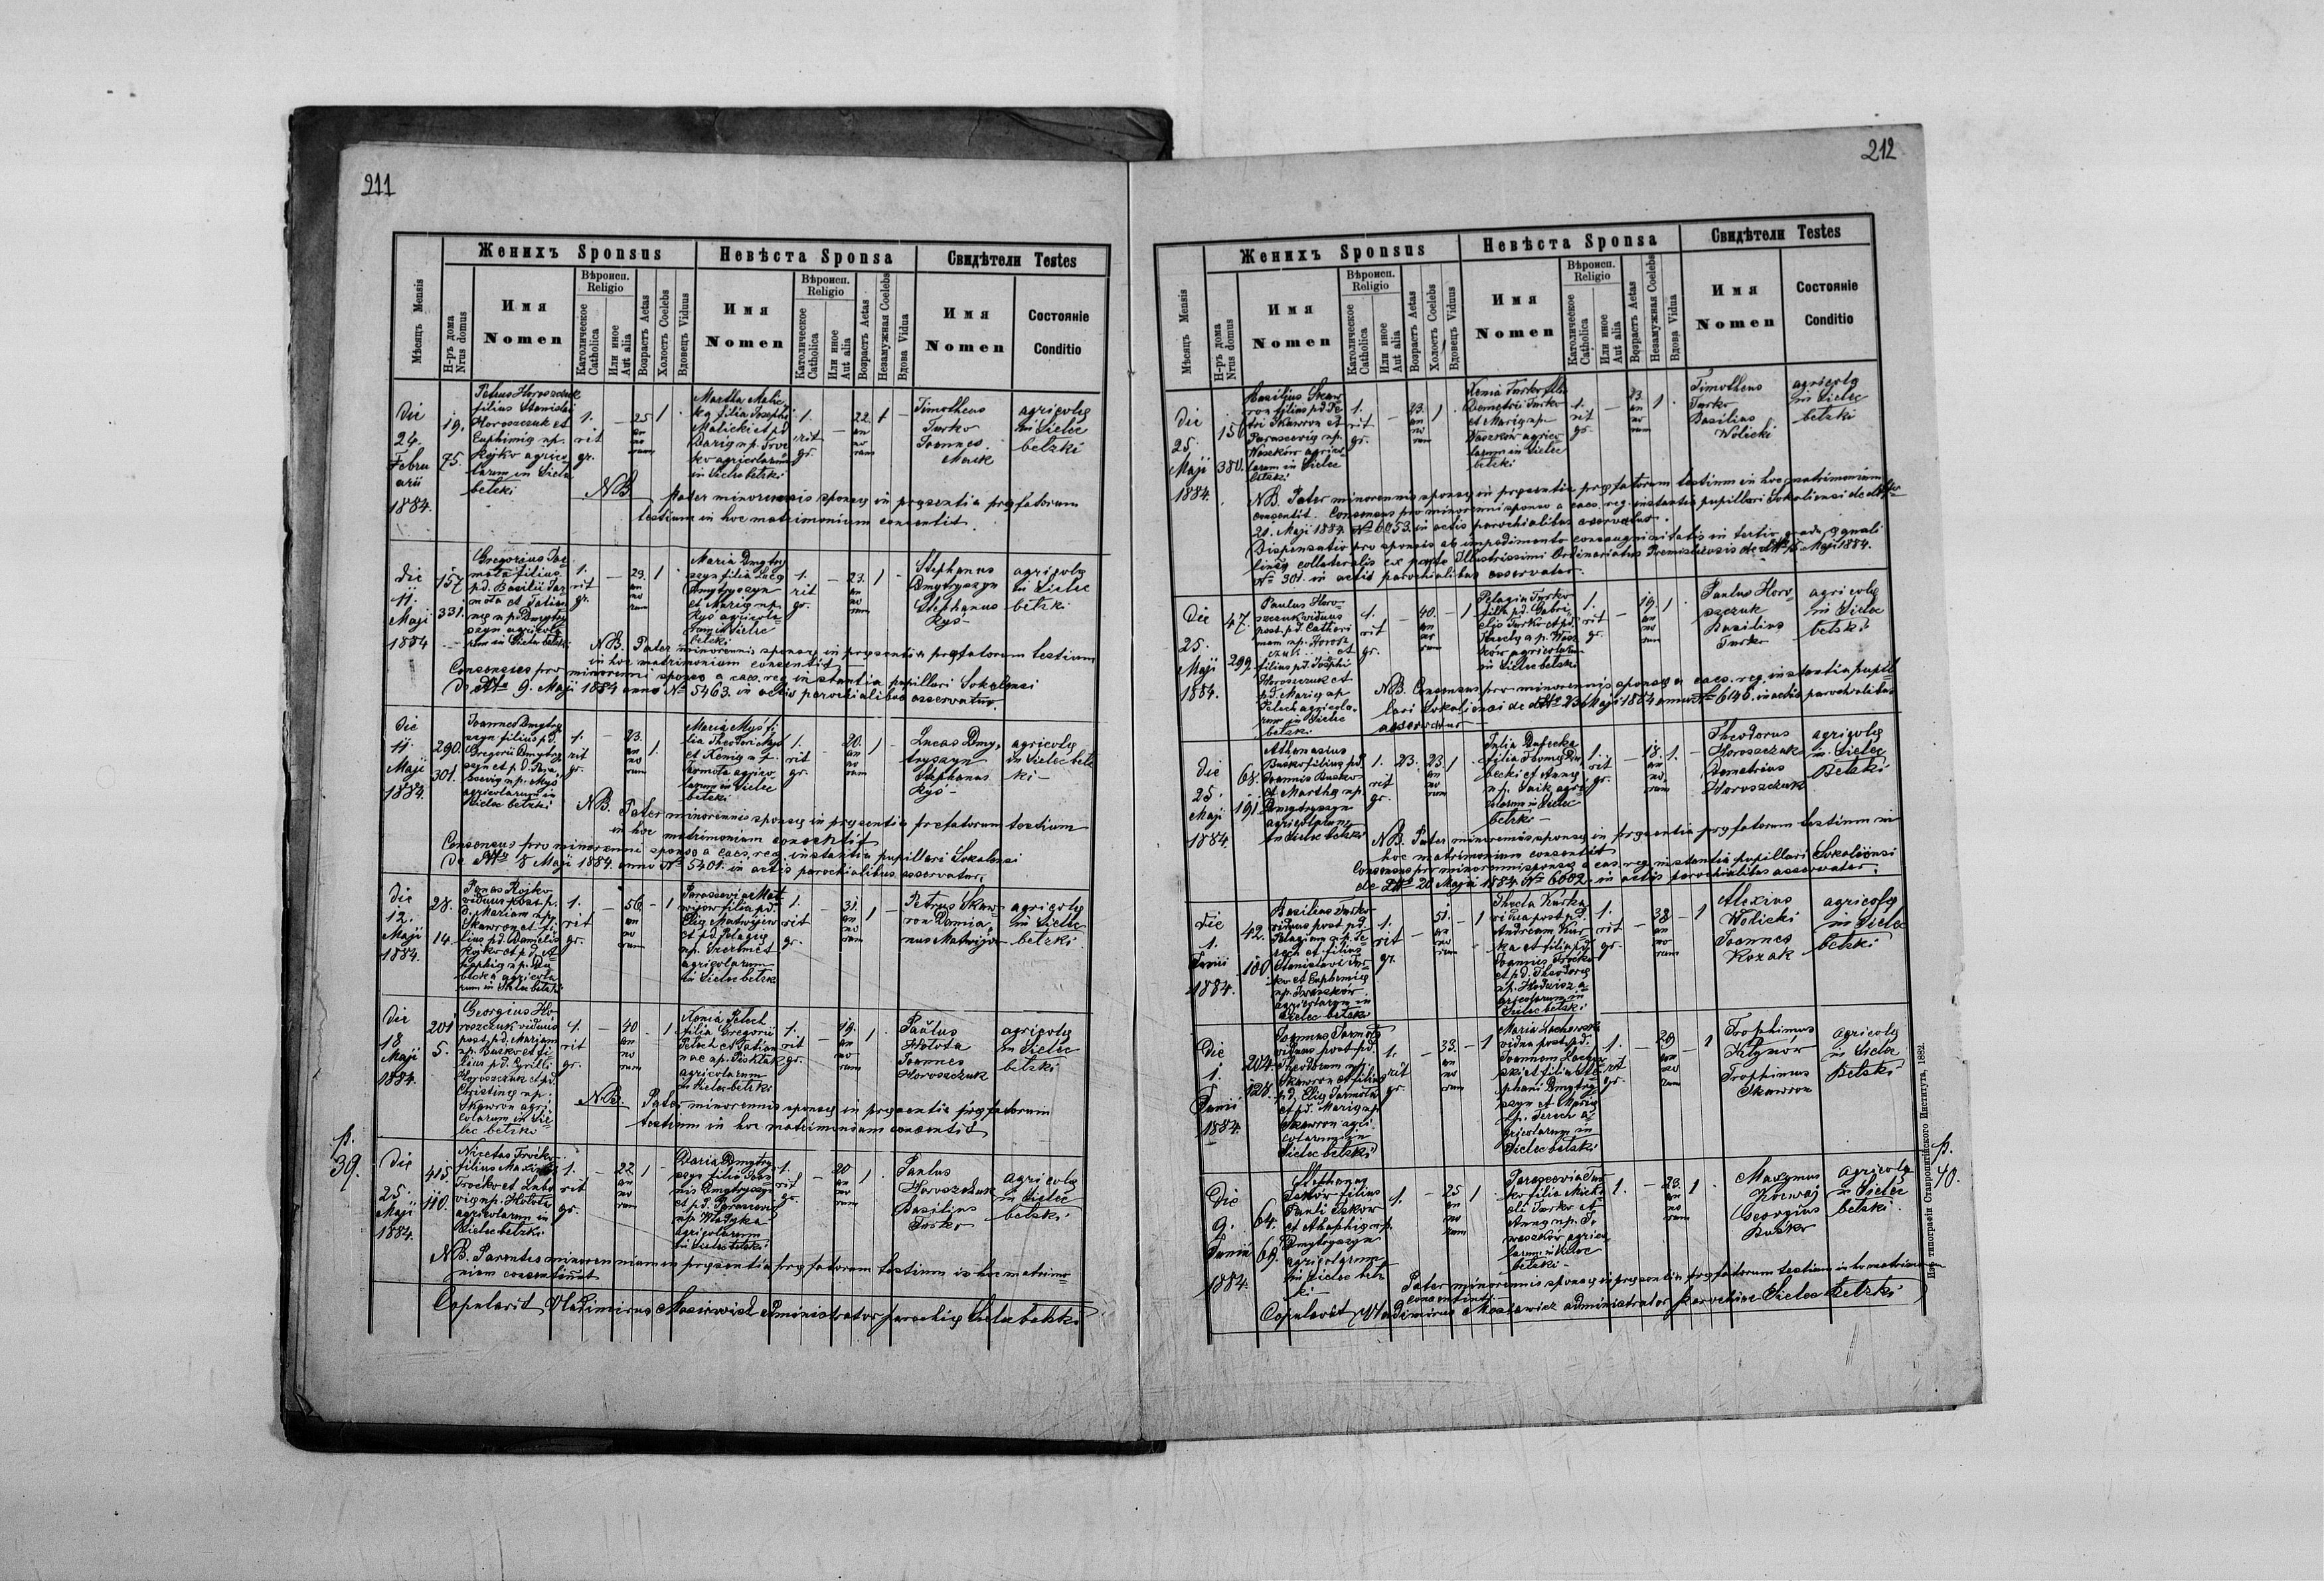 211
Женихъ Sponsus
Невѣста Sponsa
Свидѣтели Testes
Мѣсяцъ Mensis
Н-ръ дома
Nrus domus
Имя
Nomen
Вѣроисп.
Religio
Католическое
Catholica
Или иное
Aut alia
Возрастъ Aetas
Холостъ Coelebs
Вдовецъ Viduus
Имя
Nomen
Вѣроисп.
Religio
Католическое
Catholica
Или иное
Aut alia
Возрастъ Aetas
Незамужная Coelebs
Вдова Vidua
Имя
Nomen
Состояніе
Conditio
Die
24.
Febru
arii
1884.
19.
75.
Petrus Horoszczuk
filius Stanislai
Horoszczuk et
Euphimię n.p.
Rojko agrico
larum in Sielec
betzki
1.
rit
gr.
25
1
Martha Malic
ka filia Josephi
Malicki et pd
Darię n.p. Troc
ko agricolarum
in Sielec betzki
1.
rit
gr.
22
1
Timotheus
Turko
Joannes
agricolę
in Sielec
betzki
NB pater minorennis sponsę in pręsentia pręfatorum
testium in hoc matrimonium consentit.
Die
11.
Maji
1884
157
331.
Gregorius Jar
mota filius
pd. Basilii Jar
mota et Tatian
1.
rit
gr.
23.
1
Maria Dmytry
szyn filia Lucę
Dmytryszyn
et Marię n.p.
Ryś agricola
rum in Sielec
betzki
1.
rit
gr.
23.
1
Stephanus
Dmytryszyn
Stephanus
Ryś
agricolę
in Sielec
betzki
NB. Pater minorennis sponsę in pręsentia pręfatorum testium
in hoc matrimonium consentit
Consensus pro minorenni sponso a caes. reg. instantia pupillari Sokalensi
de dtto 9. Maji 1884 anno No 5463. in actis parochialibus asservatur.
Die
11.
Maji
1884.
290.
301.
Joannes Dmytry
szyn filius pd.
Gregorii Dmytry
szyn et pd. Para
scevię n.p. Myś
agricolarum in
Sielec betzki
1.
rit
gr.
23.
1.
Maria Myś fi
lia Theodori Myś
et Xenię n.p.
Jarmota agrico
larum in Sielec
betzki
1.
rit
gr.
20.
1
Lucas Dmy
tryszyn
Stephanus
Ryś
agricolę
in Sielec betz
ki
NB. Pater minorennis sponsę in pręsentia prefatorum testium
in hoc matrimonium consentit
Consensus pro minorenni sponso a caes. reg. instantia pupillari Sokalensi
de dtto 8 Maji 1884. anno No 5401. in actis parochialibus asservatur.
Die
12.
Maji
1884.
28.
14.
Panas Rojko
viduus post p.
d. Mariam n.p.
Skawron et fi
lius pd. Danielis
Rojko et pd. A
1.
rit
gr.
56
1
Parascevia Mat
wijow filia pd.
Elię Matwijów
et pd. Pelagię
agricolarum
in Sielec betzki
1.
rit
gr.
31.
1
Petrus Skaw
ron Damia
nus Matwijow
agricolę
in Sielec
betzki
Die
18
Maji
1884.
201
5.
Georgius Ho
roszczuk viduus
post pd. Mariam
n.p. Busko et fi
lius pd. Cyrilli
Horoszczuk et pd.
Christinę n.p.
Skawron agri
colarum in Sie
lec betzki
1.
rit
gr.
40
1
Xenia Pelech
filia Gregorii
Pelech et Tatian
agricolarum
in Sielec betzki
1.
rit
gr.
19.
1
Paulus
Hołota
Joannes
Horoszczuk
agricolę
in Sielec
betzki
NB. Pater minorennis sponsę in pręsentia pręfatorum
testium in hoc matrimonium consentit
p.
39.
Die
25.
Maji
1884.
415.
110.
Nicetas Trocko
filius Maximi
Trocko et Lubo
vię n.p. Hołota
agricolarum in
Sielec betzki
1.
rit
gr.
22
1
Daria Dmytry
szyn filia Joan
nis Dmytryszyn
et pd. Parascevię
n.p. Władyka
agricolarum
in Sielec betzki
1.
rit
gr.
20
1
Paulus
Horoszczuk
Basilius
Turko
agricolę
in Sielec
betzki
NB. Parentes minorennium in pręsentia pręfatorum testium in hoc matrimo
nium consentiunt
Copulavit Vladimirus administrator parochię Sielec betzki
212
Женихъ Sponsus
Невѣста Sponsa
Свидѣтели Testes
Мѣсяцъ Mensis
Н-ръ дома
Nrus domus
Имя
Nomen
Вѣроисп.
Religio
Католическое
Catholica
Или иное
Aut alia
Возрастъ Aetas
Холостъ Coelebs
Вдовецъ Viduus
Имя
Nomen
Вѣроисп.
Religio
Католическое
Catholica
Или иное
Aut alia
Возрастъ Aetas
Незамужная Coelebs
Вдова Vidua
Имя
Nomen
Состояніе
Conditio
Die
25.
Maji
1884.
156
380.
Basilius Skaw
ron filius pd Pe
tri Skawron et
Parascevię n.p.
Waszków agrico
larum in Sielec
betzki
1.
rit
gr.
23.
1
Xenia Turko filia
Demetrii Turko
et Marię n.p.
Waszków agrico
larum in Sielec
betzki
1.
rit
gr.
23.
1.
Timotheus
Turko
Basilius
Wolicki
agricolę
in Sielec
betzki
NB. Pater minorennis sponsę in pręsentia pręfatorum testium in hoc matrimonium
consentit. Consensus pro minorenni sponso a caes. reg. instantia pupillari Sokaliensi de dtto
21. Maji 1884. No 6053. in actis parochialibus asservatur.
Dispensatio pro sponsis ab impedimento consanguinitatis in tertio gradu ęquali
lineę collateralis ex parte Illustrissimi Ordinariatus Premisliensis de dtto Maji 1884.
No 301. in actis parochialibus asservatur.
Die
25.
Maji
1884.
47.
299.
Paulus Horo
szczuk viduus
post pd. Cathari
nam n.p. Horosz
czuk et
filius pd. Josephi
Horoszczuk et
pd. Marię n.p.
Pelech agricola
rum in Sielec
betzki
1.
rit
gr.
40.
1
Pelagia Turko
filia pd. Gabri
elis Turko et pd.
Theclę n.p. Wasz
ków agricolarum
in Sielec betzki
1.
rit
gr.
19.
1
Paulus Horo
szczuk
Basilius
Turko
agricolę
in Sielec
betzki
NB. Consensus pro minorennis sponsę a caes. reg. instantia pupil
lari Sokaliensi de dtto 23 Maji 1884 anno No 6146. in actis parochialibus
asservatur
Die
25.
Maji
1884.
68.
191.
Athanasius
Busko filius pd.
Joannis Busko
et Marthę n.p.
Dmytryszyn
agricolarum
in Sielec betzki
1.
rit
gr.
23.
23.
1
Julia Dubecka
filia Thomę Du
becki et Annę
n.p. agri
colarum in Sielec
betzki
1.
rit
gr.
18.
1.
Theodorus
Horoszczuk
Demetrius
Horoszczuk
agricolę
in Sielec
Betzki
NB. Pater minorennis sponsę in pręsentia pręfatorum testium in
hoc matrimonium consentit
Consensus pro minorenni sponso a caes. reg. instantia pupillari Sokaliensi
de Dtto 20 Maji 1884 No 6002. in actis parochialibus asservatur.
Die
1.
Junii
1884.
42.
100
Basilius Turko
viduus post pd.
Pelagiam n.p.
et filius
Stanislai Tur
ko et Euphemię
n.p. Iwaszków
agricolarum in
Sielec betzki
1.
rit
gr.
51.
1
Thecla Kurka
vidua post pd.
Andream Kur
ka et filia pd.
Joannis Trocko
et pd. Theodorę
agricolarum in
Sielec betzki
1.
rit
gr.
38
1
Alexius
Wolicki
Joannes
Kozak
agricolę
in Sielec
betzki
Die
1.
Junii
1884.
204.
128.
Joannes Jarmota
viduus post pd.
Theodoram n.p.
Skawron et filius
pd. Elię Jarmota
et pd. Marię n.p.
Skawron agri
colarum in
Sielec betzki
1.
rit
gr.
33.
1
Maria Lachowski
vidua post pd.
Joannem Lachow
ski et filia Ste
phani Dmytry
szyn et Marię
n.p. Terech a
gricolarum in
Sielec betzki
1.
rit
gr.
29
1
Trophimus
Klymor
Trophimus
Skawron
agricolę
in Sielec
Betzki
p.
40.
Die
9.
Junii
1884.
64.
69.
Stephanus
Iskow filius
Pauli Iskow
et Ahaphię n.p.
Dmytryszyn
agricolarum
in Sielec betz
ki
1.
25
1
Parascevia Tur
ko filia Micha
eli Turko et
Annę n.p. I
waszków agrico
larum in Sielec
betzki
1.
23.
1
Maxymus
Georgius
Busko
agricolę
in Sielec
betzki
Pater minorennis sponsę in pręsentia pręfatorum testium in hoc matrimonium
consentit.
Copulavit Vladimirus Mosiewicz administrator parochiae Sielec Betzki
Изъ типографіи Ставропигійского Института, 1882.